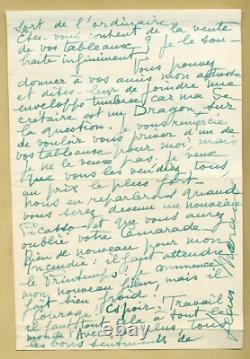 sort de l'ordinaire.
Etes-vous content de la vente
de vos tableaux, je le sou-
haite infiniment.
Vous pouvez
donner à vos amis mon adresse
et dites-leur de joindre une
enveloppe timbrée car ma se-
crétaire est un Dragon sur
la question. Je vous remercie
de vouloir vous priver d'un de
vos tableaux pour moi, mais
je ne le veux pas, je veux
que vous les vendiez tous
au prix le plus fort.
nous en reparlerons quand
vous serez devenu un nouveau
Picasso et que vous aurez
oublié votre camarade
Rien de nouveau pour mon
Incendie: il faut attendre
le printemps! Je commence
mon nouveau film, mais il
fait bien froid.
Courage! Espoir! Travail
il faut tout cela à tout le
monde. Avec en plus, tous
les bons sentiments de
Jean Marais